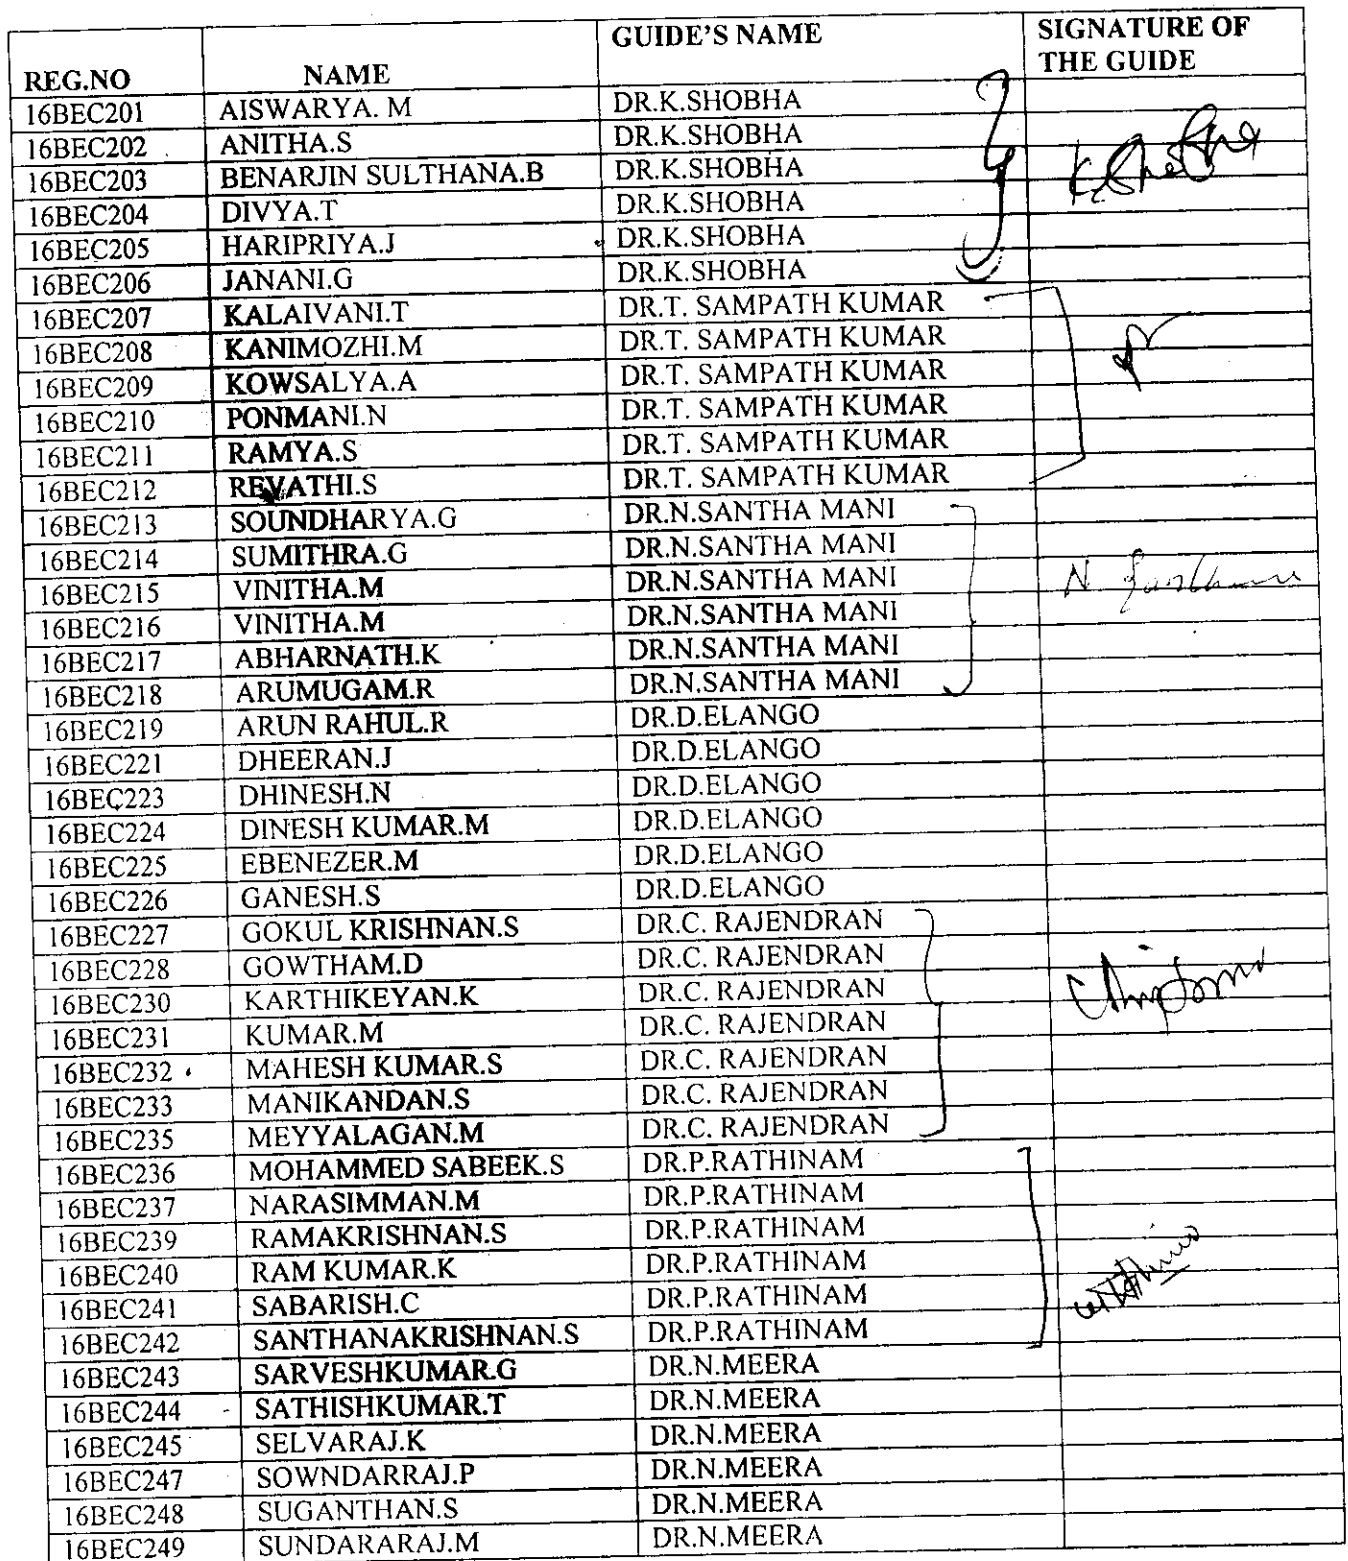 REG.NO NAME GUIDE'S NAME SIGNATURE OF THE GUIDE
16BEC201 AISWARYA. M DR.K.SHOBHA
16BEC202 ANITHA.S DR.K.SHOBHA K. Shobha
16BEC203 BENARJIN SULTHANA.B DR.K.SHOBHA
16BEC204 DIVYA.T DR.K.SHOBHA
16BEC205 HARIPRIYA.J DR.K.SHOBHA
16BEC206 JANANI.G DR.K.SHOBHA
16BEC207 KALAIVANI.T DR.T. SAMPATH KUMAR
16BEC208 KANIMOZHI.M DR.T. SAMPATH KUMAR
16BEC209 KOWSALYA.A DR.T. SAMPATH KUMAR
16BEC210 PONMANI.N DR.T. SAMPATH KUMAR
16BEC211 RAMYA.S DR.T. SAMPATH KUMAR
16BEC212 REVATHI.S DR.T. SAMPATH KUMAR
16BEC213 SOUNDHARYA.G DR.N.SANTHA MANI
16BEC214 SUMITHRA.G DR.N.SANTHA MANI
16BEC215 VINITHA.M DR.N.SANTHA MANI
16BEC216 VINITHA.M DR.N.SANTHA MANI
16BEC217 ABHARNATH.K DR.N.SANTHA MANI
16BEC218 ARUMUGAM.R DR.N.SANTHA MANI
16BEC219 ARUN RAHUL.R DR.D.ELANGO
16BEC221 DHEERAN.J DR.D.ELANGO
16BEC223 DHINESH.N DR.D.ELANGO
16BEC224 DINESH KUMAR.M DR.D.ELANGO
16BEC225 EBENEZER.M DR.D.ELANGO
16BEC226 GANESH.S DR.D.ELANGO
16BEC227 GOKUL KRISHNAN.S DR.C. RAJENDRAN
16BEC228 GOWTHAM.D DR.C. RAJENDRAN
16BEC230 KARTHIKEYAN.K DR.C. RAJENDRAN
16BEC231 KUMAR.M DR.C. RAJENDRAN
16BEC232 MAHESH KUMAR.S DR.C. RAJENDRAN
16BEC233 MANIKANDAN.S DR.C. RAJENDRAN
16BEC235 MEYYALAGAN.M DR.C. RAJENDRAN
16BEC236 MOHAMMED SABEEK.S DR.P.RATHINAM
16BEC237 NARASIMMAN.M DR.P.RATHINAM
16BEC239 RAMAKRISHNAN.S DR.P.RATHINAM
16BEC240 RAM KUMAR.K DR.P.RATHINAM
16BEC241 SABARISH.C DR.P.RATHINAM
16BEC242 SANTHANAKRISHNAN.S DR.P.RATHINAM
16BEC243 SARVESHKUMAR.G DR.N.MEERA
16BEC244 SATHISHKUMAR.T DR.N.MEERA
16BEC245 SELVARAJ.K DR.N.MEERA
16BEC247 SOWNDARRAJ.P DR.N.MEERA
16BEC248 SUGANTHAN.S DR.N.MEERA
16BEC249 SUNDARARAJ.M DR.N.MEERA